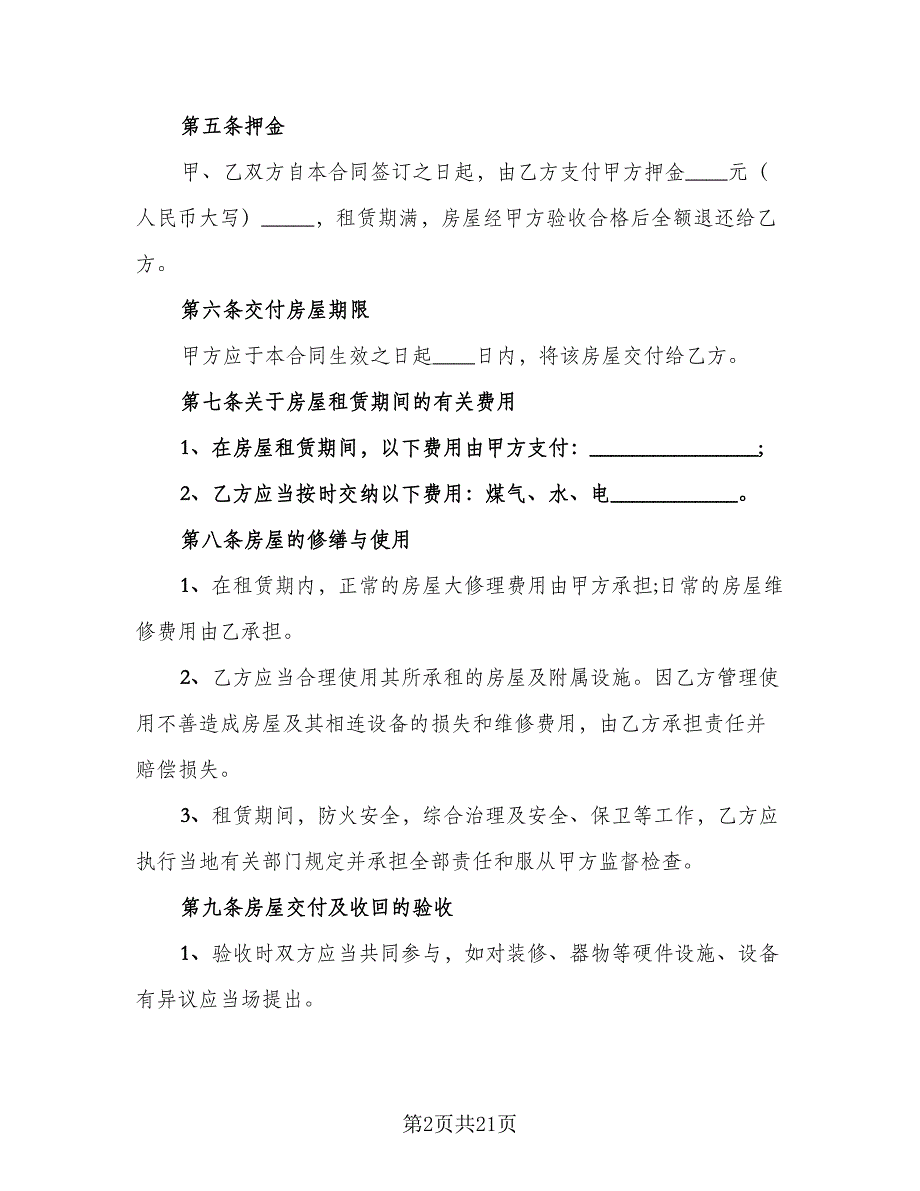 第五条押金
甲、乙双方自本合同签订之日起，由乙方支付甲方押金____元（
人民币大写）_____，租赁期满，房屋经甲方验收合格后全额退还给乙
方。
第六条交付房屋期限
甲方应于本合同生效之日起____日内，将该房屋交付给乙方。
第七条关于房屋租赁期间的有关费用
1、在房屋租赁期间，以下费用由甲方支付：________________;
2、乙方应当按时交纳以下费用：煤气、水、电____________。
第八条房屋的修缮与使用
1、在租赁期内，正常的房屋大修理费用由甲方承担;日常的房屋维
修费用由乙承担。
2、乙方应当合理使用其所承租的房屋及附属设施。因乙方管理使
用不善造成房屋及其相连设备的损失和维修费用，由乙方承担责任并
赔偿损失。
3、租赁期间，防火安全，综合治理及安全、保卫等工作，乙方应
执行当地有关部门规定并承担全部责任和服从甲方监督检查。
第九条房屋交付及收回的验收
1、验收时双方应当共同参与，如对装修、器物等硬件设施、设备
有异议应当场提出。
第2页共21页